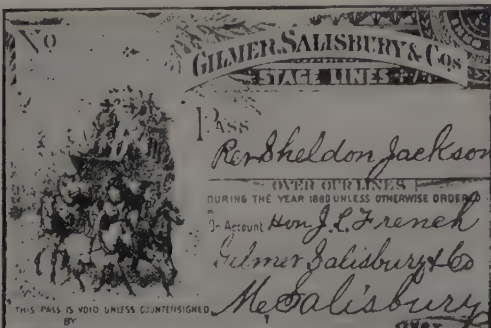 No
GILMER, SALISBURY & COS
STAGE LINES
PASS
Rev Sheldon Jackson
OVER OUR LINES
DURING THE YEAR 1880 UNLESS OTHERWISE ORDERED
On Account Hon J. L. French
Gilmer Salisbury & Co
M Salisbury
THIS PASS IS VOID UNLESS COUNTERSIGNED
BY